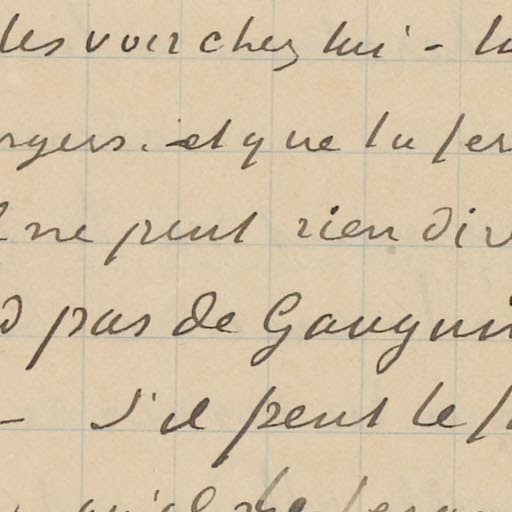 les voir chez lui – tu
rgers. et que tu fer
ne peut rien dire
pas de Gauguin
– S'il peut le f
qu'il